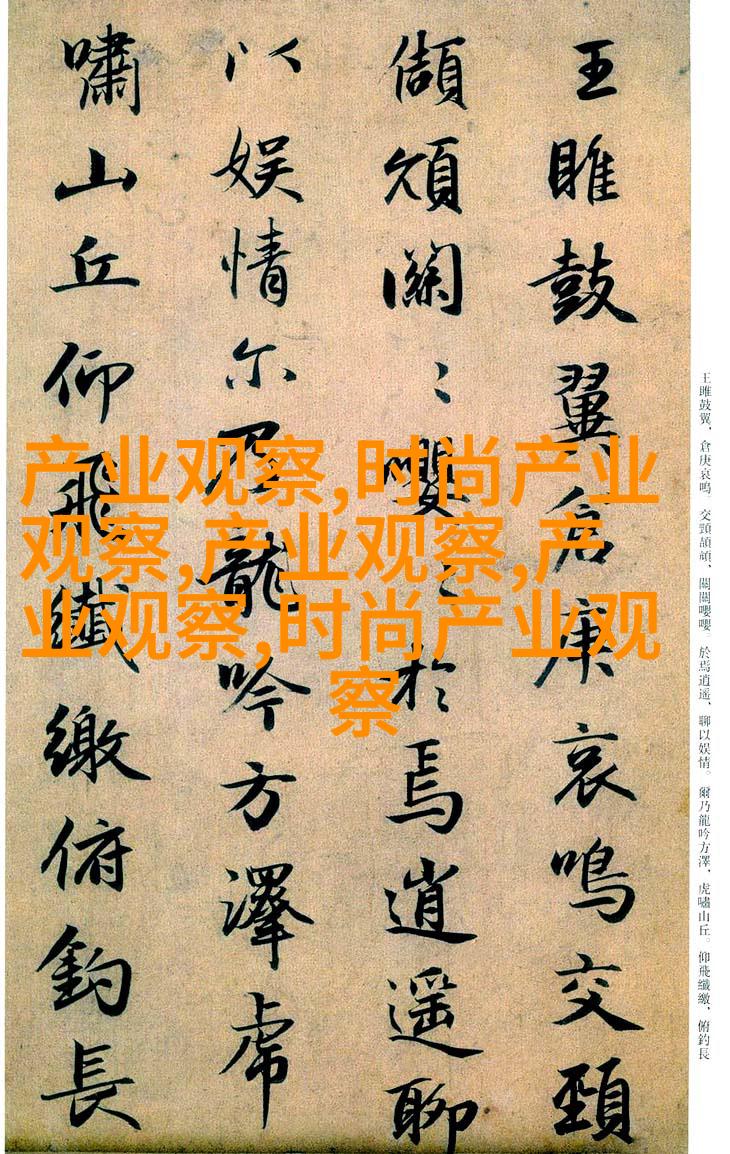 王雎鼓翼倉庚哀鳴交頸
頡頏關〻嚶〻於焉逍遥聊
以娱情尓乃龍吟方澤虎
嘯山丘仰飛纖繳俯釣長
王雎鼓翼、倉庚哀鳴。交頸頡頏、關關嚶嚶。於焉逍遥、聊以娱情。爾乃龍吟方澤、虎嘯山丘。仰飛纖繳、俯釣長
产业观察,时尚产业
观察,产业观察,产
业观察,时尚产业观
察